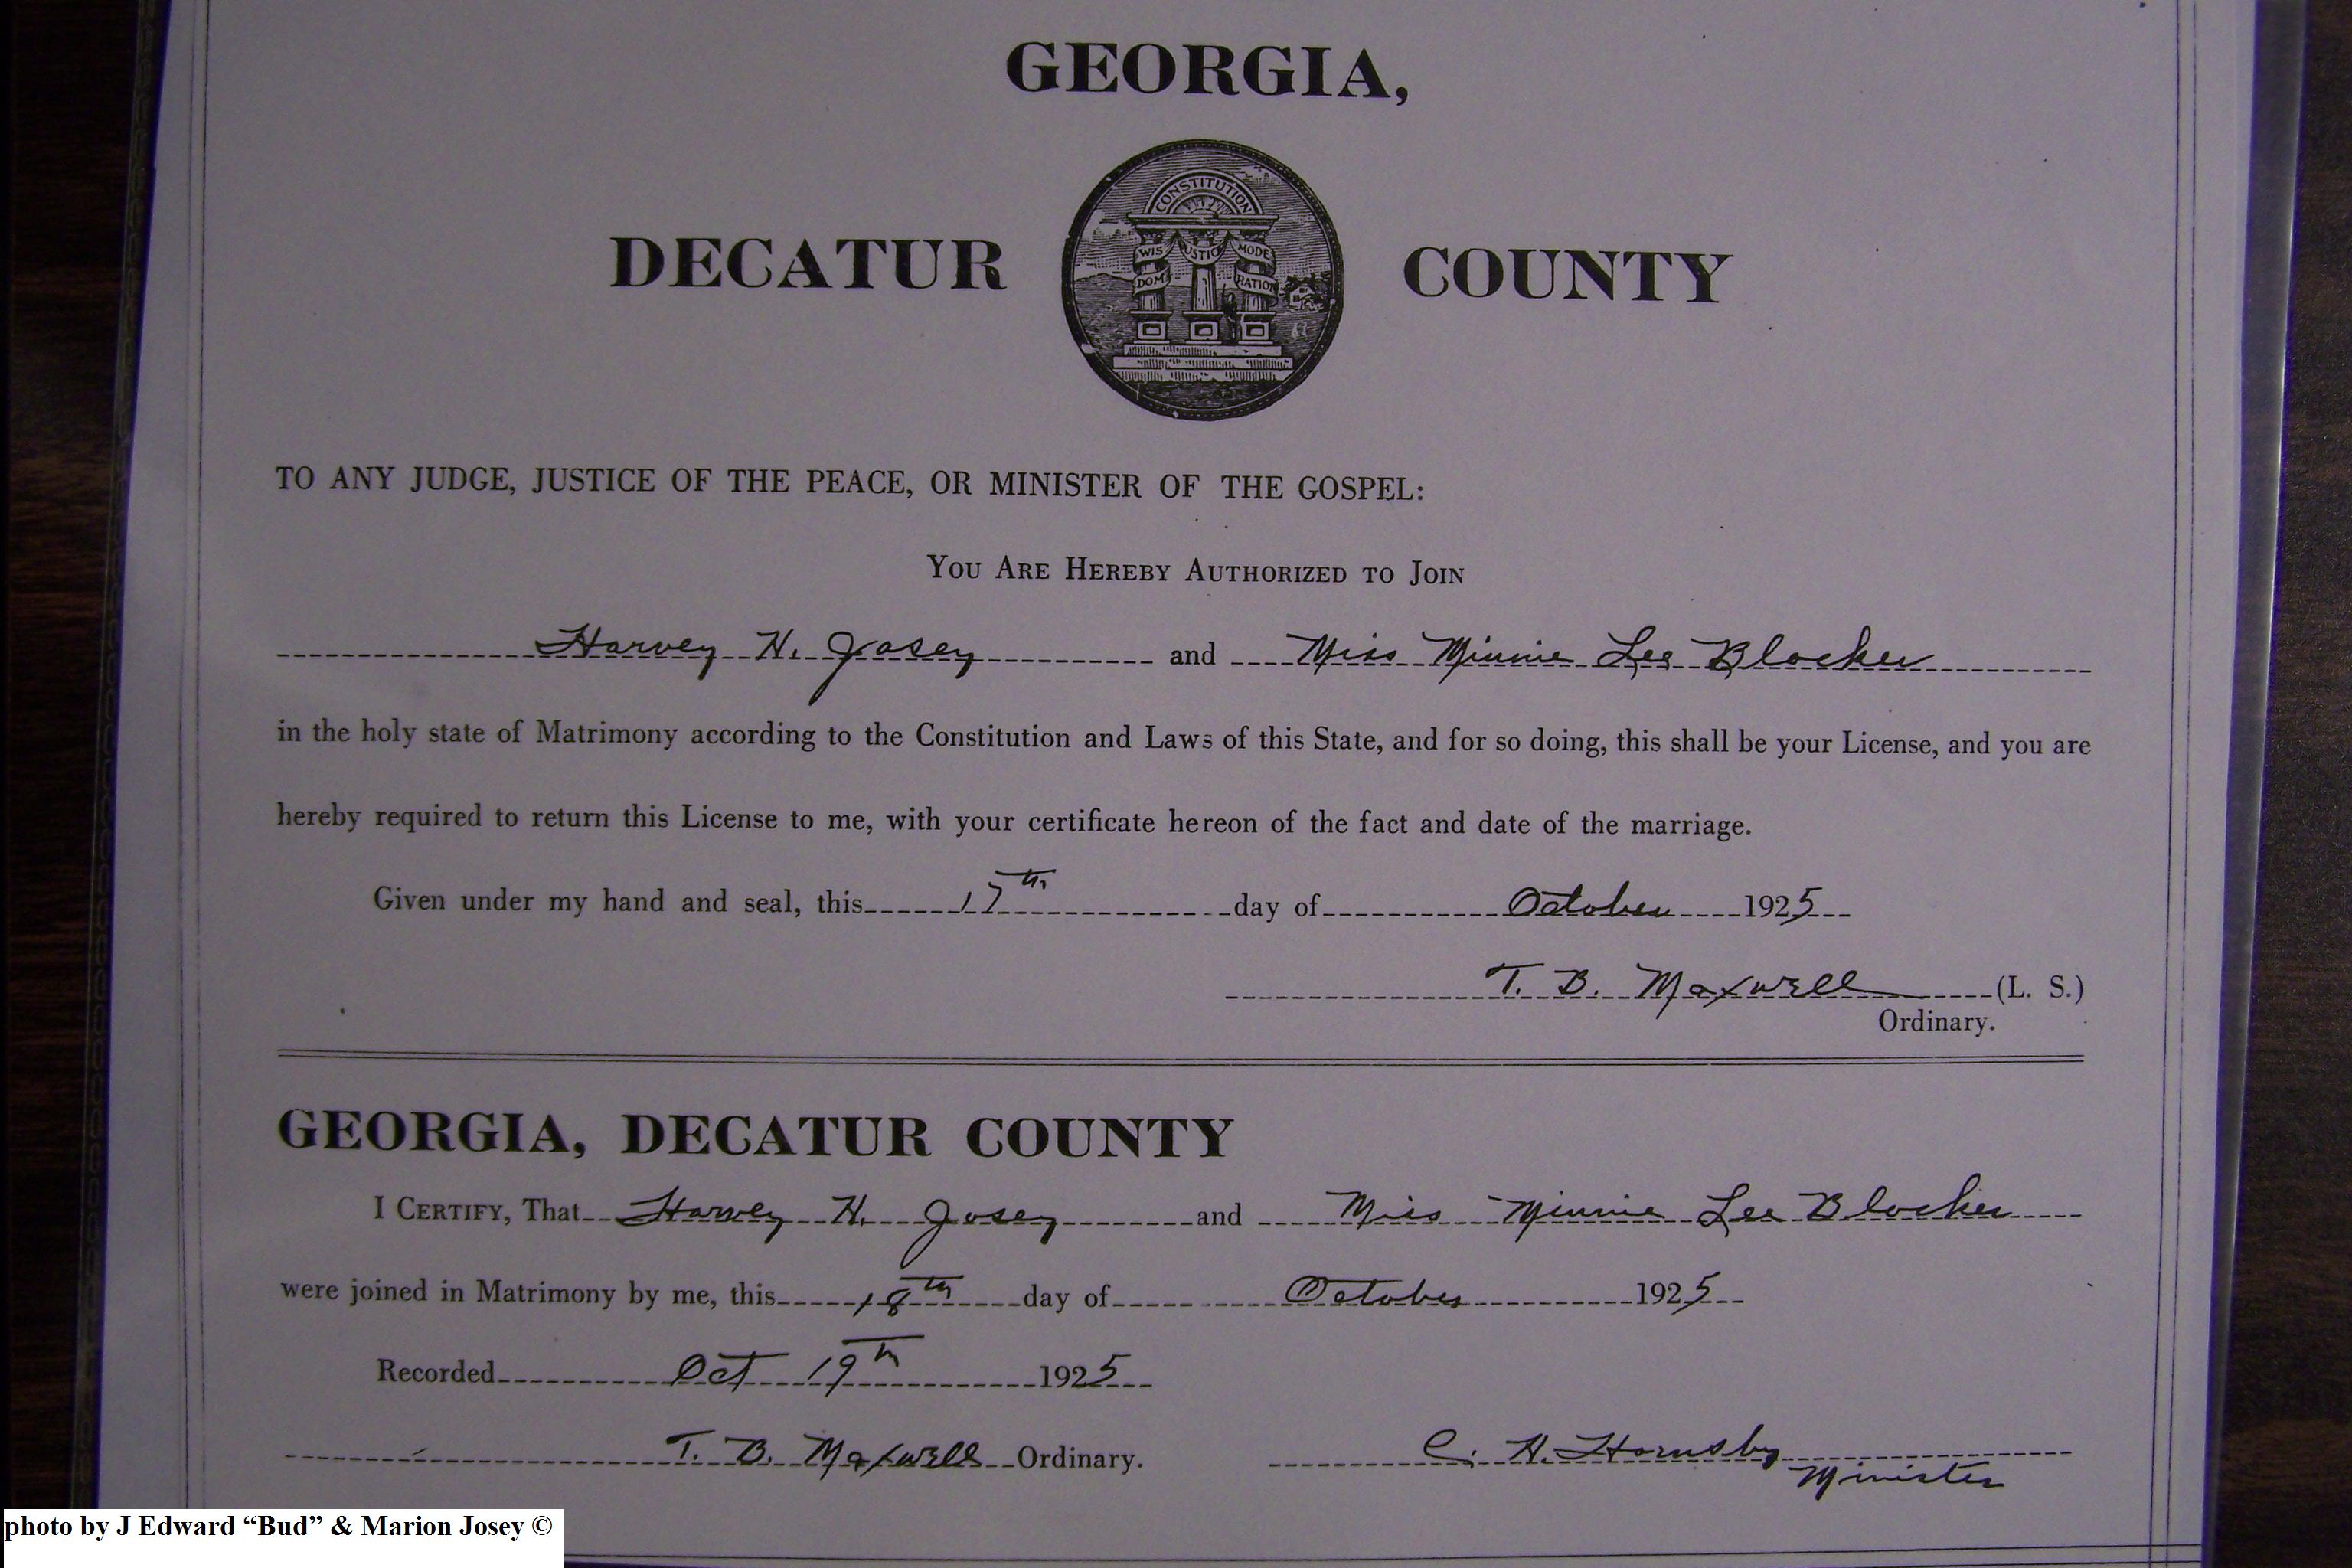 GEORGIA,
CONSTITUTION
WIS JUSTICE MODE
DOM RATION
DECATUR COUNTY
TO ANY JUDGE, JUSTICE OF THE PEACE, OR MINISTER OF THE GOSPEL:
You Are Hereby Authorized to Join
Harvey H. Josey and Miss Minnie Lee Blocker
in the holy state of Matrimony according to the Constitution and Laws of this State, and for so doing, this shall be your License, and you are
hereby required to return this License to me, with your certificate hereon of the fact and date of the marriage.
Given under my hand and seal, this 17th day of October 1925
T. B. Maxwell (L. S.)
Ordinary.
GEORGIA, DECATUR COUNTY
I Certify, That Harvey H. Josey and Miss Minnie Lee Blocker
were joined in Matrimony by me, this 18th day of October 1925
Recorded Oct 19th 1925
T. B. Maxwell Ordinary. C. H. Hornsby
Minister
photo by J Edward “Bud” & Marion Josey ©